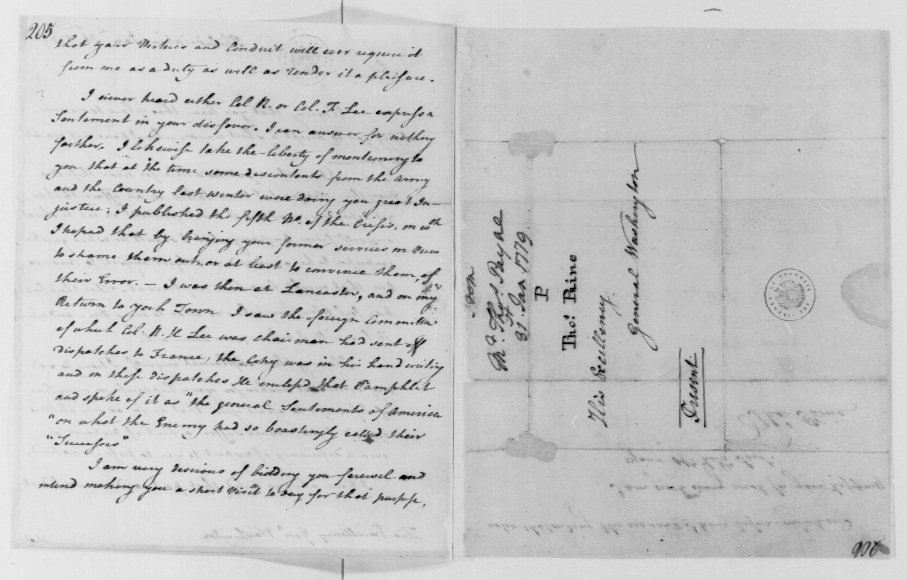 205
that your Virtues and Conduct will ever require it
from me as a duty as well as render it a pleasure.
I never heard either Col R. or Col. F. Lee express a
Sentiment in your disfavor. I can answer for nothing
farther. I likewise take the liberty of mentioning to
you that at the time some discontents from the Army
and the Country last winter were doing you great In-
justice, I published the fifth No. of the Crisis, in wch
I hoped that by bringing your former services in View
to shame them out, or at least to convince them, of
their Error. — I was then at Lancaster, and on my
Return to York Town I saw the foreign Committee
of which Col. R. H. Lee was chairman had sent off
dispatches to France, the Copy was in his hand writing
and in these dispatches He enclosed that Pamphlet
and spoke of it as "the general Sentiments of America
"on what the Enemy had so boastingly called their
"Successes"
I am very desirous of bidding you farewel and
intend making you a short Visit to day for that purpose,
From
Mr. Thos. Payne
31. Jan 1779
P
Thos. Paine
His Excellency
General Washington
Present
206